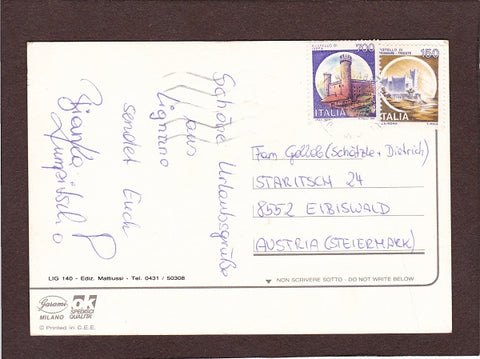 Schöne Urlaubsgrüße
aus
Lignano
sendet Euch
Bianka
CASTELLO DI
700
ITALIA
150
ITALIA
Fam Gollob (Schätzle + Dietrich)
STARITSCH 24
8552 EIBISWALD
AUSTRIA (STEIERMARK)
LIG 140 - Ediz. Mattiussi - Tel. 0431 / 50308
NON SCRIVERE SOTTO - DO NOT WRITE BELOW
Garami
MILANO
OK
SPEDISCI
QUALITÀ
© Printed in C.E.E.